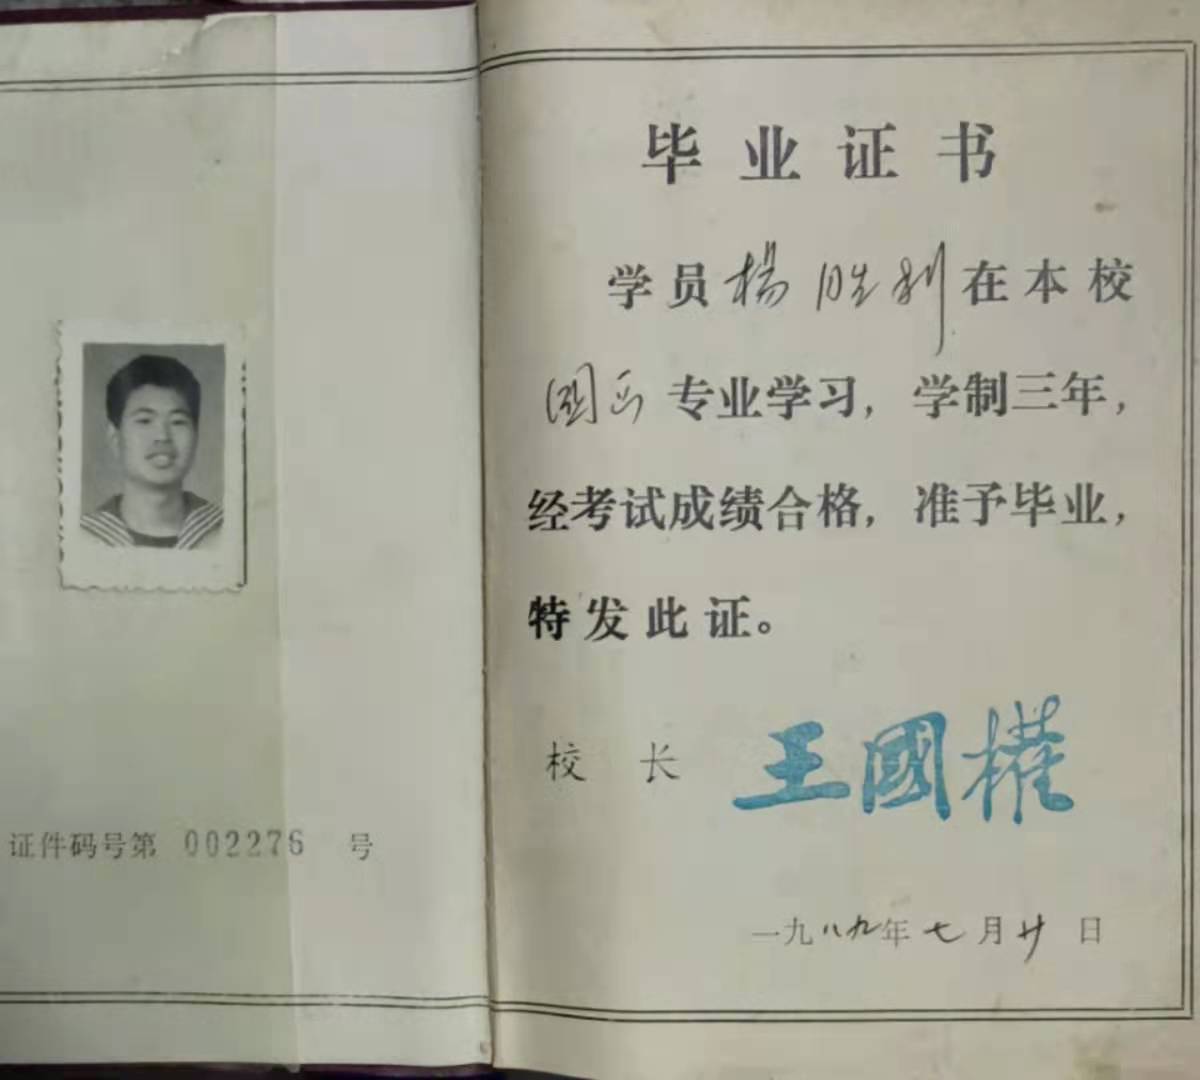 证件码号第 002276 号
毕业证书
学员楊胜利在本校
国画专业学习，学制三年，
经考试成绩合格，准予毕业，
特发此证。
校 长 王國權
一九八九年七月廿日